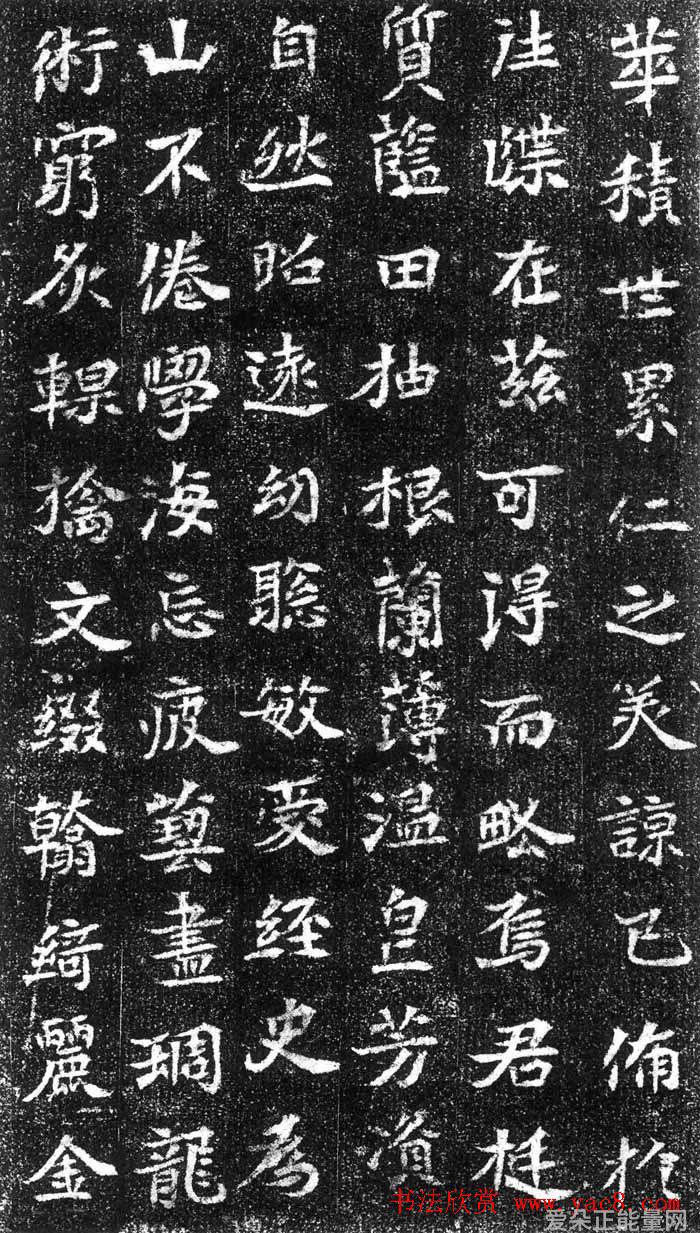 華積世累仁之美諒已備於
往牒在茲可得而略焉君挺
質藍田抽根蘭薄溫皀芳資
自然昭遠幼聦敏愛經史為
山不倦學海忘疲藝盡琱龍
術窮炙輠擒文綴翰綺麗金
书法欣赏 www.yac8.com
爱朵正能量网